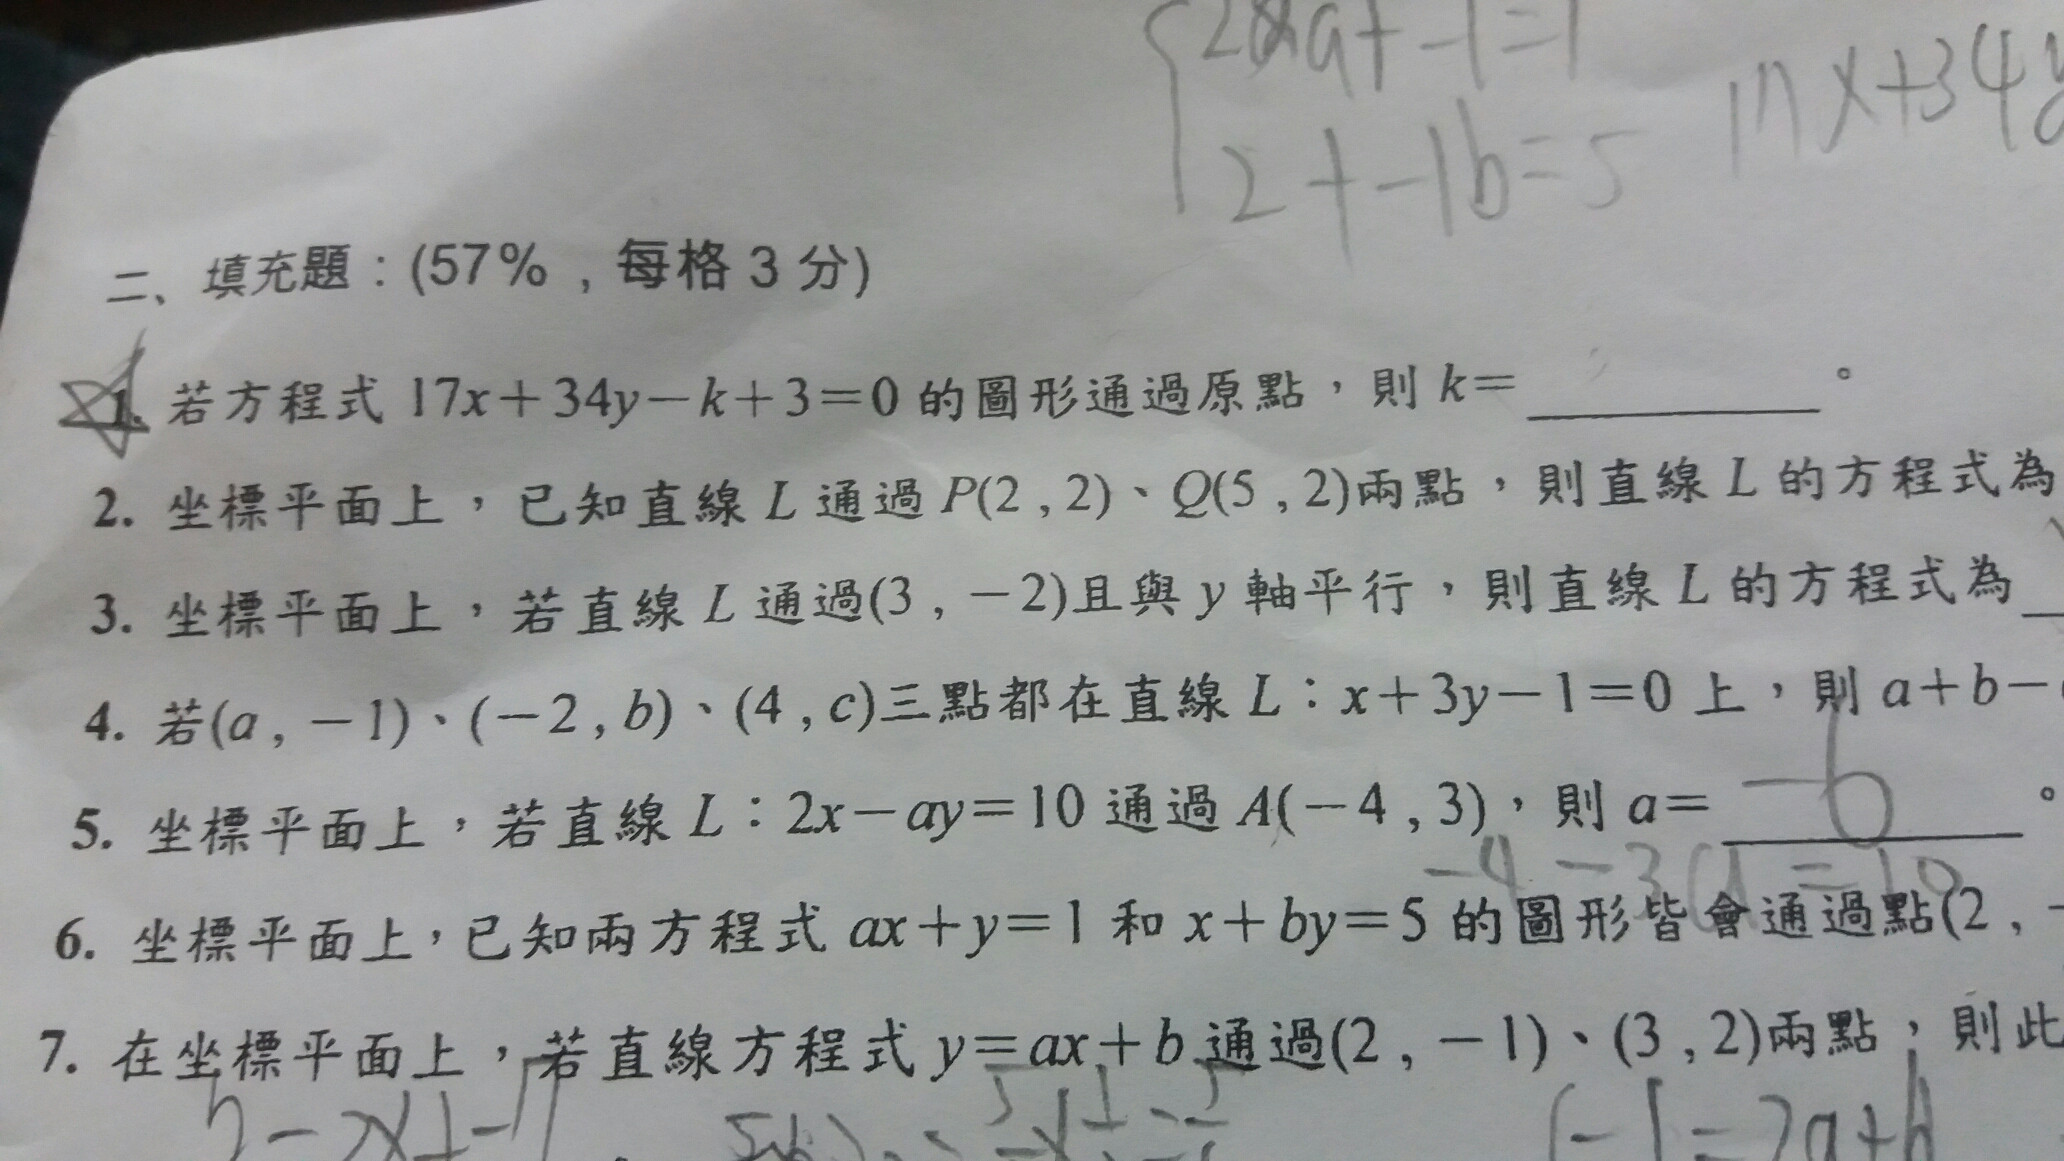 2a+-1=1
17x+34y
2+-1b=5
二、填充題:(57%,每格3分)
1. 若方程式 17x+34y-k+3=0 的圖形通過原點,則 k=______。
2. 坐標平面上,已知直線 L 通過 P(2,2)、Q(5,2)兩點,則直線 L 的方程式為
3. 坐標平面上,若直線 L 通過(3,-2)且與 y 軸平行,則直線 L 的方程式為
4. 若(a,-1)、(-2,b)、(4,c)三點都在直線 L:x+3y-1=0 上,則 a+b-
5. 坐標平面上,若直線 L:2x-ay=10 通過 A(-4,3),則 a= -6 。
-4-3a=10
6. 坐標平面上,已知兩方程式 ax+y=1 和 x+by=5 的圖形皆會通過點(2,-
7. 在坐標平面上,若直線方程式 y=ax+b 通過(2,-1)、(3,2)兩點,則此
-1=2a+b